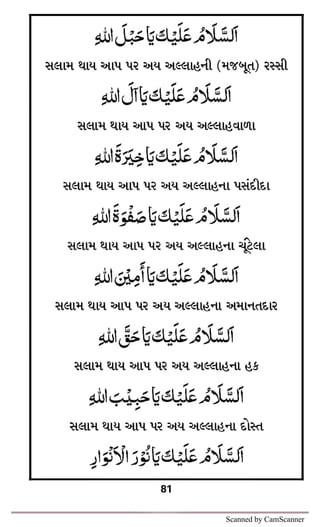 اَلسَّلَامُ عَلَيْكَ يَا حَبْلَ اللهِ
સલામ થાય આપ પર અય અલ્લાહની (મજબૂત) રસ્સી
اَلسَّلَامُ عَلَيْكَ يَا آلَ اللهِ
સલામ થાય આપ પર અય અલ્લાહવાળા
اَلسَّلَامُ عَلَيْكَ يَا خِيَرَةَ اللهِ
સલામ થાય આપ પર અય અલ્લાહના પસંદીદા
اَلسَّلَامُ عَلَيْكَ يَا صَفْوَةَ اللهِ
સલામ થાય આપ પર અય અલ્લાહના ચૂંટેલા
اَلسَّلَامُ عَلَيْكَ يَا أَمِيْنَ اللهِ
સલામ થાય આપ પર અય અલ્લાહના અમાનતદાર
اَلسَّلَامُ عَلَيْكَ يَا حَقَّ اللهِ
સલામ થાય આપ પર અય અલ્લાહના હક
اَلسَّلَامُ عَلَيْكَ يَا حَبِيْبَ اللهِ
સલામ થાય આપ પર અય અલ્લાહના દોસ્ત
اَلسَّلَامُ عَلَيْكَ يَا نُوْرَ الْاَنْوَارِ
81
Scanned by CamScanner